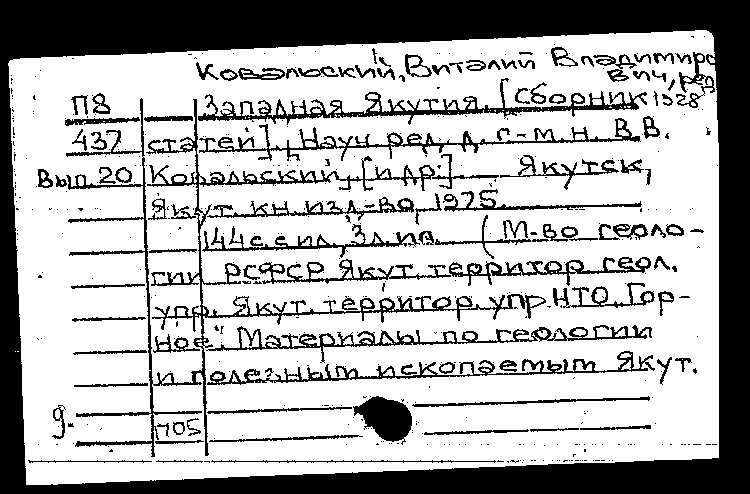 Ковальский, Виталий Владимиро
вич, ред.
П8 Западная Якутия. [Сборник 1928
437 статей]. Науч. ред. д. г.-м. н. В.В.
Вып. 20 Ковальский, [и др.]. Якутск,
Якут. кн. изд-во, 1975.
144 с. с ил., 3 л. ил. (М-во геоло-
гии РСФСР. Якут. территор. геол.
упр. Якут. территор. упр НТО „Гор-
ное“. Материалы по геологии
и полезным ископаемым Якут.
9.
705